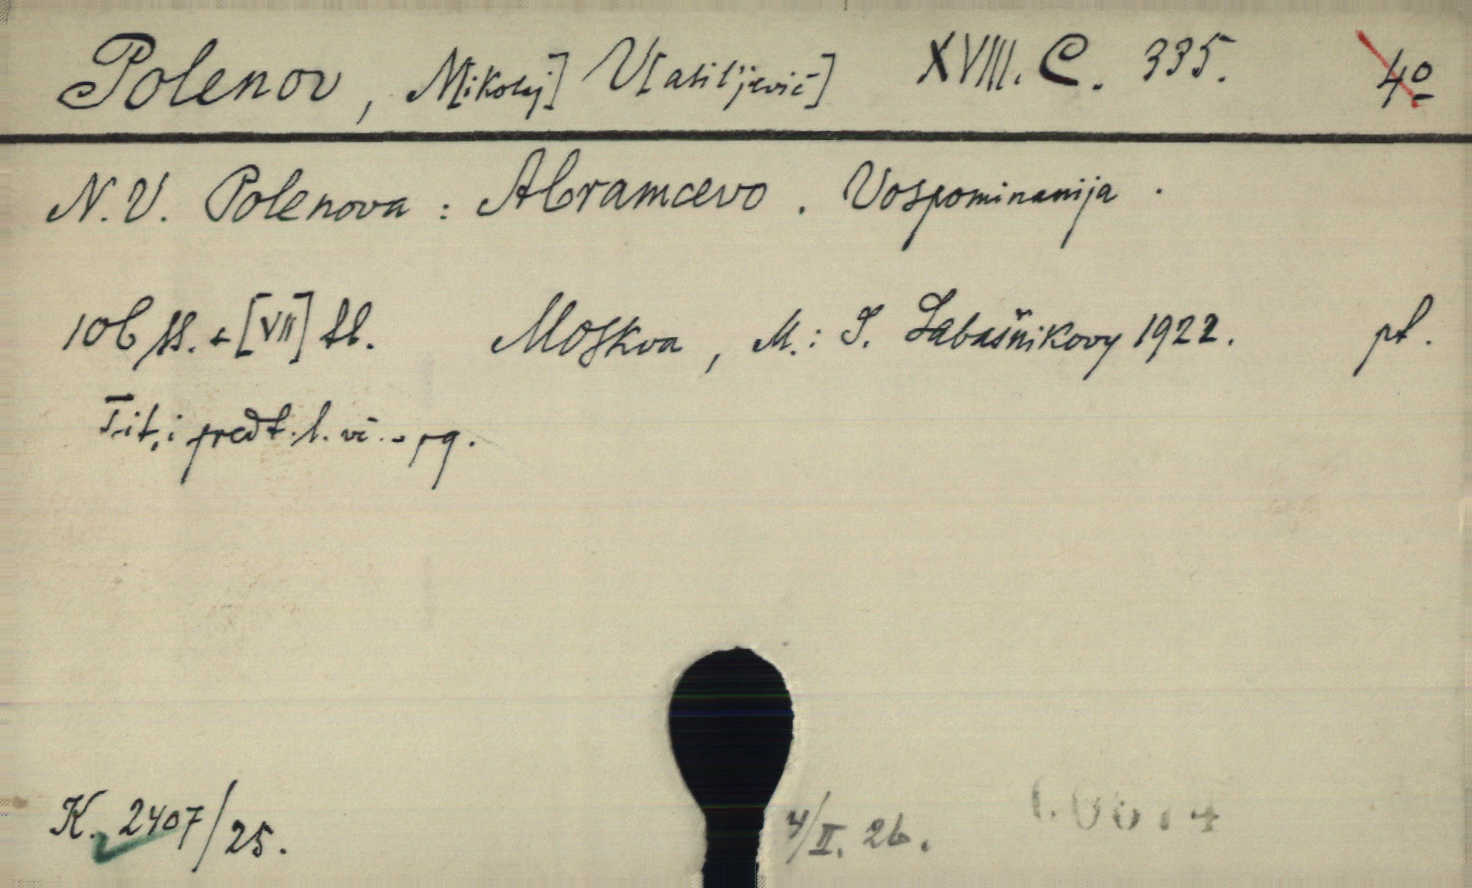 Polenov, N[ikolaj] V[asiljevič] XVIII. C. 335. 4º
N. V. Polenova : Abramcevo. Vospominanija.
106 ss. + [VII] tb. Moskva, M.: S. Sabašnikovy 1922. pl.
Tit. i předt. l. vč. pg.
K. 2407/25. 4/II. 26.